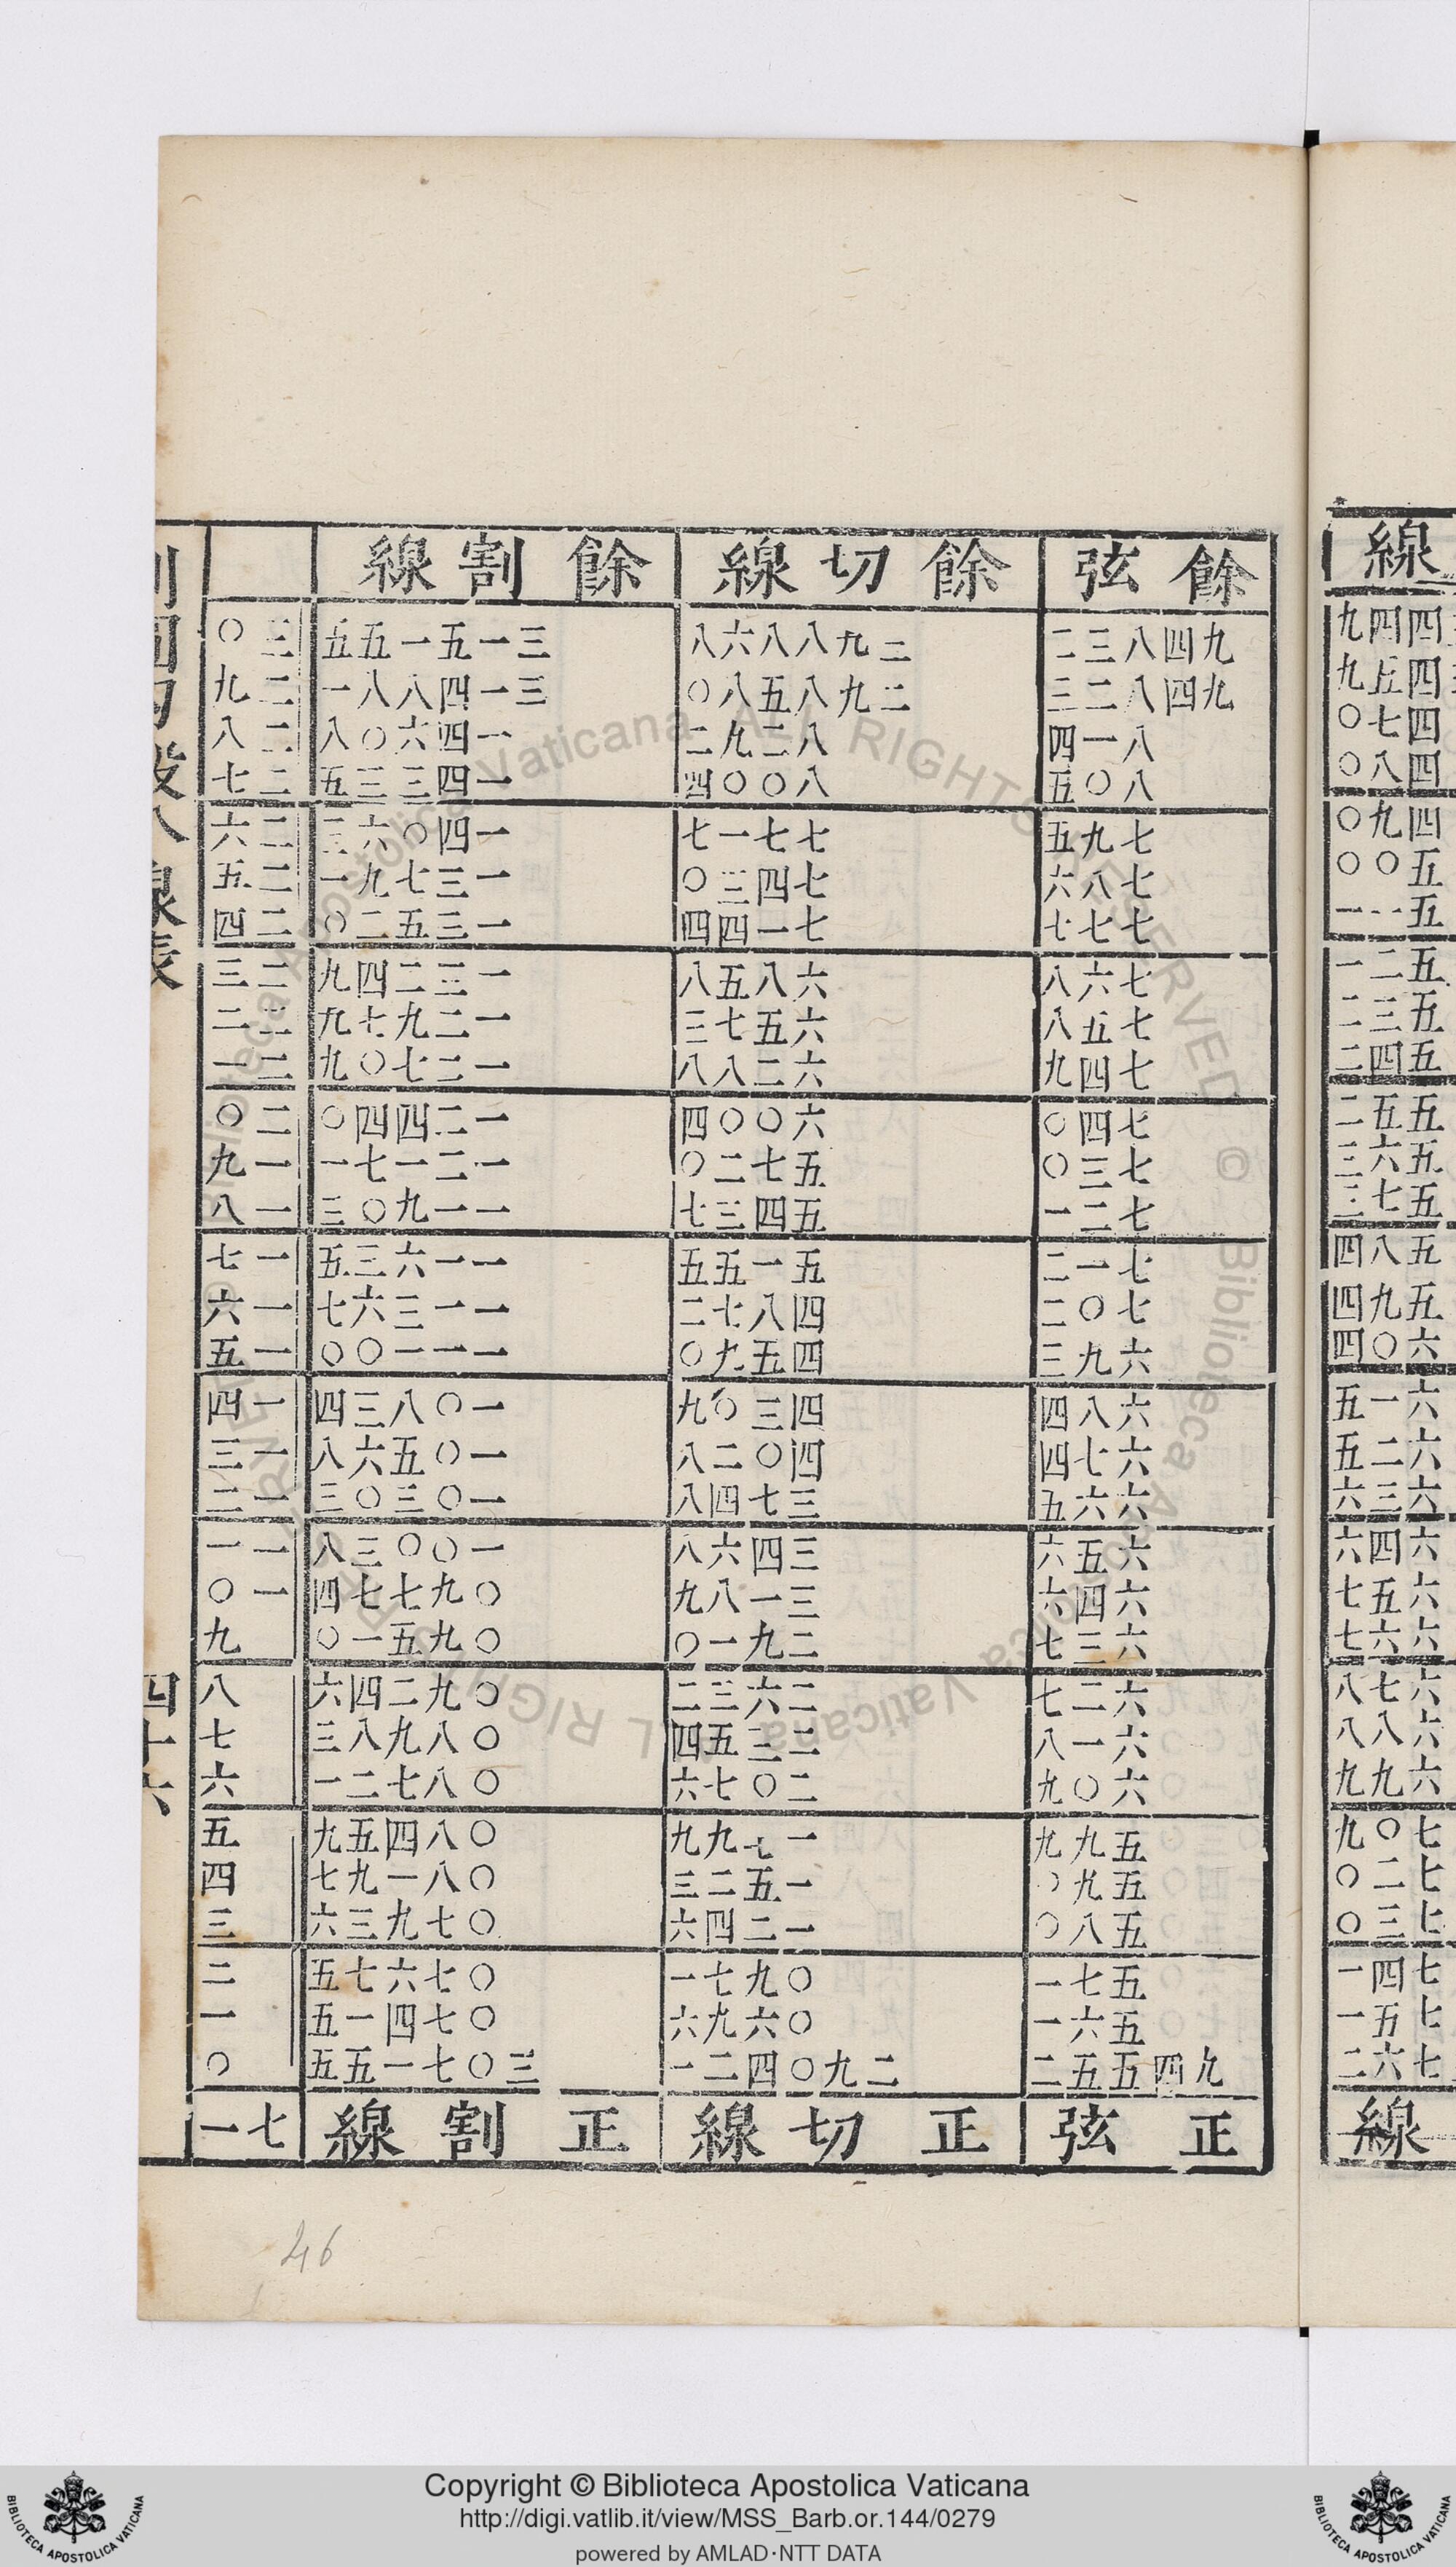 線
四四九
四五九
四七〇
四八〇
四九〇
五〇〇
五一一
五二一
五三二
五四二
五五二
五六三
五七三
五八四
五九四
六〇四
六一五
六二五
六三六
六四六
六五七
六六七
六七八
六八八
六九九
七〇九
七二〇
七三〇
七四一
七五一
七六二
線
餘弦 餘切線 餘割線
九四八三二 二九八八六八 三一五一五五 三〇
九四八二三 二九八五八〇 三一四八八一 二九
八一四 八二九二 一四六〇八 二八
八〇五 八〇〇四 一四三三五 二七
七九五 七七一七 一四〇六三 二六
七八六 七四三〇 一三七九一 二五
七七七 七一四四 一三五二〇 二四
七六八 六八五八 一三二四九 二三
七五八 六五七三 一二九七九 二二
七四九 六二八八 一二七〇九 二一
七四〇 六〇〇四 一二四四〇 二〇
七三〇 五七二〇 一二一七一 一九
七二一 五四三七 一一九〇三 一八
七一二 五一五五 一一六三五 一七
七〇二 四八七二 一一三六七 一六
六九三 四五九〇 一一一〇〇 一五
六八四 四三〇九 一〇八三四 一四
六七四 四〇二八 一〇五六八 一三
六六五 三七四八 一〇三〇三 一二
六五六 三四六八 一〇〇三八 一一
六四六 三一八九 〇九七七四 一〇
六三七 二九一〇 〇九五一〇 九
六二七 二六三二 〇九二四六 八
六一八 二三五四 〇八九八三 七
六〇九 二〇七六 〇八七二一 六
五九九 一七九九 〇八四五九 五
五九〇 一五二三 〇八一九七 四
五八〇 一二四六 〇七九三六 三
五七一 〇九七一 〇七六七五 二
五六一 〇六九六 〇七四一五 一
九四五五二 二九〇四二一 三〇七一五五 〇
正弦 正切線 正割線 七一
割圓勾股八線表 四十六
46
Copyright © Biblioteca Apostolica Vaticana
http://digi.vatlib.it/view/MSS_Barb.or.144/0279
powered by AMLAD·NTT DATA
BIBLIOTECA APOSTOLICA VATICANA
BIBLIOTECA APOSTOLICA VATICANA